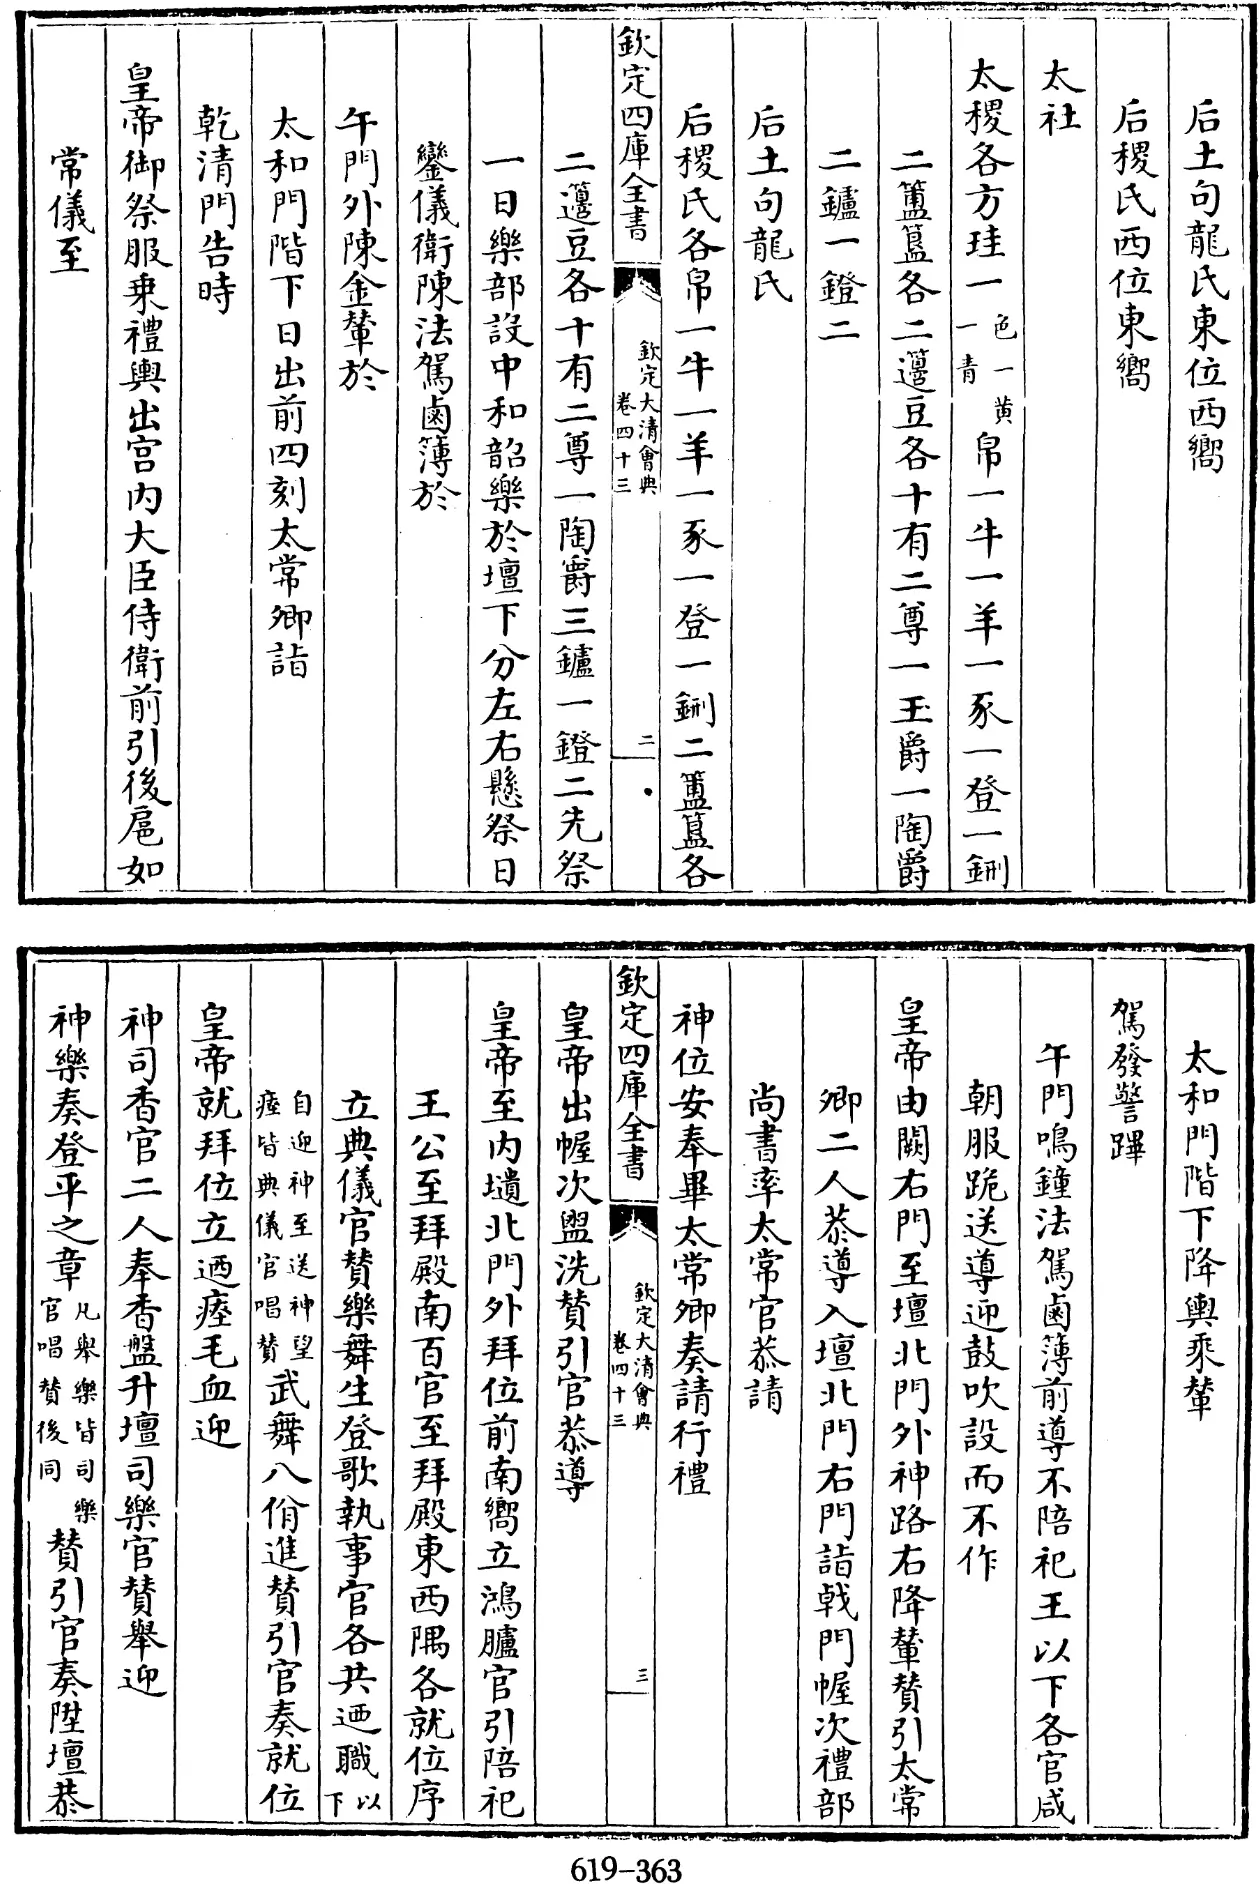 后土句龍氏東位西嚮
后稷氏西位東嚮
太社
太稷各方珪一色一黄一青帛一牛一羊一豕一登一鉶
二簠簋各二籩豆各十有二尊一玉爵一陶爵
二鑪一鐙二
后土句龍氏
后稷氏各帛一牛一羊一豕一登一鉶二簠簋各
欽定四庫全書
欽定大清會典
卷四十三
二
二籩豆各十有二尊一陶爵三鑪一鐙二先祭
一日樂部設中和韶樂於壇下分左右懸祭日
鑾儀衛陳法駕鹵簿於
午門外陳金輦於
太和門階下日出前四刻太常卿詣
乾清門告時
皇帝御祭服乗禮輿出宫内大臣侍衛前引後扈如
常儀至
太和門階下降輿乘輦
駕發警蹕
午門鳴鐘法駕鹵簿前導不陪祀王以下各官咸
朝服跪送導迎鼓吹設而不作
皇帝由闕右門至壇北門外神路右降輦贊引太常
卿二人恭導入壇北門右門詣戟門幄次禮部
尚書率太常官恭請
神位安奉畢太常卿奏請行禮
欽定四庫全書
欽定大清會典
卷四十三
三
皇帝出幄次盥洗贊引官恭導
皇帝至内壝北門外拜位前南嚮立鴻臚官引陪祀
王公至拜殿南百官至拜殿東西隅各就位序
立典儀官贊樂舞生登歌執事官各共迺職以下
自迎神至送神望瘞皆典儀官唱贊武舞八佾進贊引官奏就位
皇帝就拜位立迺瘞毛血迎
神司香官二人奉香盤升壇司樂官贊舉迎
神樂奏登平之章凡舉樂皆司樂官唱贊後同贊引官奏陞壇恭
619-363